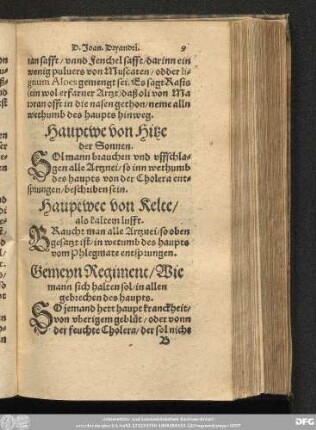 D. Joan. Dryandri. 9
ian safft/ vnnd Fenchel safft/ dar inn ein
wenig puluers von Muscaten/ odder li-
gnum Aloes gemengt sei. Es sagt Rasis
ein wol erfarner Artzt/ daß oli von Ma
ioran offt in die nasen gethon/ neme alln
wethumb des haupts hinweg.
Hauptwe von Hitze
der Sonnen.
SOl mann brauchen vnd vffschla-
gen alle Artznei/ so inn wethumb
des haupts von der Cholera ent-
sprungen/ beschriben sein.
Hauptwee von Kelte/
als kaltem lufft.
BRaucht man alle Artznei/ so oben
gesatzt ist/ in wetumb des haupts
vom Phlegmate entsprungen.
Gemeyn Regiment/ Wie
mann sich halten sol/ in allen
gebrechen des haupts.
SO jemand hett haupt kranckheit/
von vberigem geblüt/ oder vonn
der feuchte Cholera/ der sol nicht
B
DFG